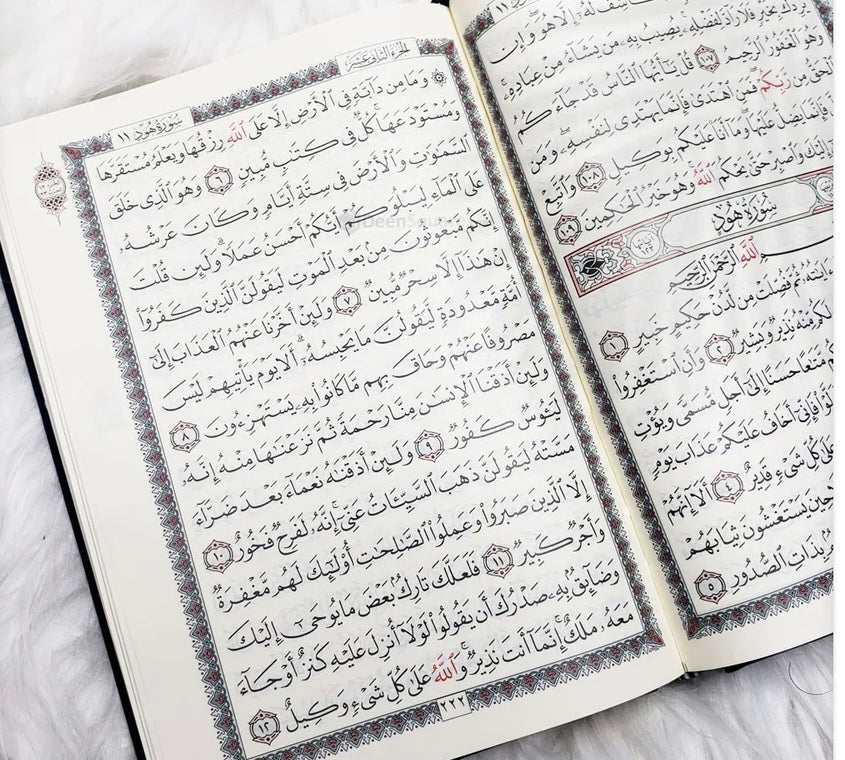 هُوَ وَإِن
يُرِدْكَ بِخَيْرٍ فَلَا رَآدَّ لِفَضْلِهِۦ يُصِيبُ بِهِۦ مَن يَشَآءُ مِنْ عِبَادِهِۦ
وَهُوَ ٱلْغَفُورُ ٱلرَّحِيمُ ١٠٧ قُلْ يَٰٓأَيُّهَا ٱلنَّاسُ قَدْ جَآءَكُمُ
ٱلْحَقُّ مِن رَّبِّكُمْ فَمَنِ ٱهْتَدَىٰ فَإِنَّمَا يَهْتَدِى لِنَفْسِهِۦ وَمَن
فَإِنَّمَا يَضِلُّ عَلَيْهَا وَمَآ أَنَا۠ عَلَيْكُم بِوَكِيلٍ ١٠٨ وَٱتَّبِعْ
إِلَيْكَ وَٱصْبِرْ حَتَّىٰ يَحْكُمَ ٱللَّهُ وَهُوَ خَيْرُ ٱلْحَٰكِمِينَ ١٠٩
سُورَةُ هُودٍ
ٱللَّهِ ٱلرَّحْمَٰنِ ٱلرَّحِيمِ
ءَايَٰتُهُۥ ثُمَّ فُصِّلَتْ مِن لَّدُنْ حَكِيمٍ خَبِيرٍ ١
لَكُم مِّنْهُ نَذِيرٌ وَبَشِيرٌ ٢ وَأَنِ ٱسْتَغْفِرُوا۟
مَّتَٰعًا حَسَنًا إِلَىٰٓ أَجَلٍ مُّسَمًّى وَيُؤْتِ
فَإِنِّىٓ أَخَافُ عَلَيْكُمْ عَذَابَ يَوْمٍ
عَلَىٰ كُلِّ شَىْءٍ قَدِيرٌ ٤ أَلَآ إِنَّهُمْ
حِينَ يَسْتَغْشُونَ ثِيَابَهُمْ
بِذَاتِ ٱلصُّدُورِ ٥
الجزء الثاني عشر
سورة هود ١١
۞ وَمَا مِن دَآبَّةٍ فِى ٱلْأَرْضِ إِلَّا عَلَى ٱللَّهِ رِزْقُهَا وَيَعْلَمُ مُسْتَقَرَّهَا
وَمُسْتَوْدَعَهَا كُلٌّ فِى كِتَٰبٍ مُّبِينٍ ٦ وَهُوَ ٱلَّذِى خَلَقَ
ٱلسَّمَٰوَٰتِ وَٱلْأَرْضَ فِى سِتَّةِ أَيَّامٍ وَكَانَ عَرْشُهُۥ
عَلَى ٱلْمَآءِ لِيَبْلُوَكُمْ أَيُّكُمْ أَحْسَنُ عَمَلًا وَلَئِن قُلْتَ
إِنَّكُم مَّبْعُوثُونَ مِنۢ بَعْدِ ٱلْمَوْتِ لَيَقُولَنَّ ٱلَّذِينَ كَفَرُوٓا۟
إِنْ هَٰذَآ إِلَّا سِحْرٌ مُّبِينٌ ٧ وَلَئِنْ أَخَّرْنَا عَنْهُمُ ٱلْعَذَابَ إِلَىٰٓ
أُمَّةٍ مَّعْدُودَةٍ لَّيَقُولُنَّ مَا يَحْبِسُهُۥٓ أَلَا يَوْمَ يَأْتِيهِمْ لَيْسَ
مَصْرُوفًا عَنْهُمْ وَحَاقَ بِهِم مَّا كَانُوا۟ بِهِۦ يَسْتَهْزِءُونَ ٨
وَلَئِنْ أَذَقْنَا ٱلْإِنسَٰنَ مِنَّا رَحْمَةً ثُمَّ نَزَعْنَٰهَا مِنْهُ إِنَّهُۥ
لَيَـُٔوسٌ كَفُورٌ ٩ وَلَئِنْ أَذَقْنَٰهُ نَعْمَآءَ بَعْدَ ضَرَّآءَ
مَسَّتْهُ لَيَقُولَنَّ ذَهَبَ ٱلسَّيِّـَٔاتُ عَنِّىٓ إِنَّهُۥ لَفَرِحٌ فَخُورٌ ١٠
إِلَّا ٱلَّذِينَ صَبَرُوا۟ وَعَمِلُوا۟ ٱلصَّٰلِحَٰتِ أُو۟لَٰٓئِكَ لَهُم مَّغْفِرَةٌ
وَأَجْرٌ كَبِيرٌ ١١ فَلَعَلَّكَ تَارِكٌۢ بَعْضَ مَا يُوحَىٰٓ إِلَيْكَ
وَضَآئِقٌۢ بِهِۦ صَدْرُكَ أَن يَقُولُوا۟ لَوْلَآ أُنزِلَ عَلَيْهِ كَنزٌ أَوْ جَآءَ
مَعَهُۥ مَلَكٌ إِنَّمَآ أَنتَ نَذِيرٌ وَٱللَّهُ عَلَىٰ كُلِّ شَىْءٍ وَكِيلٌ ١٢
٢٢٢